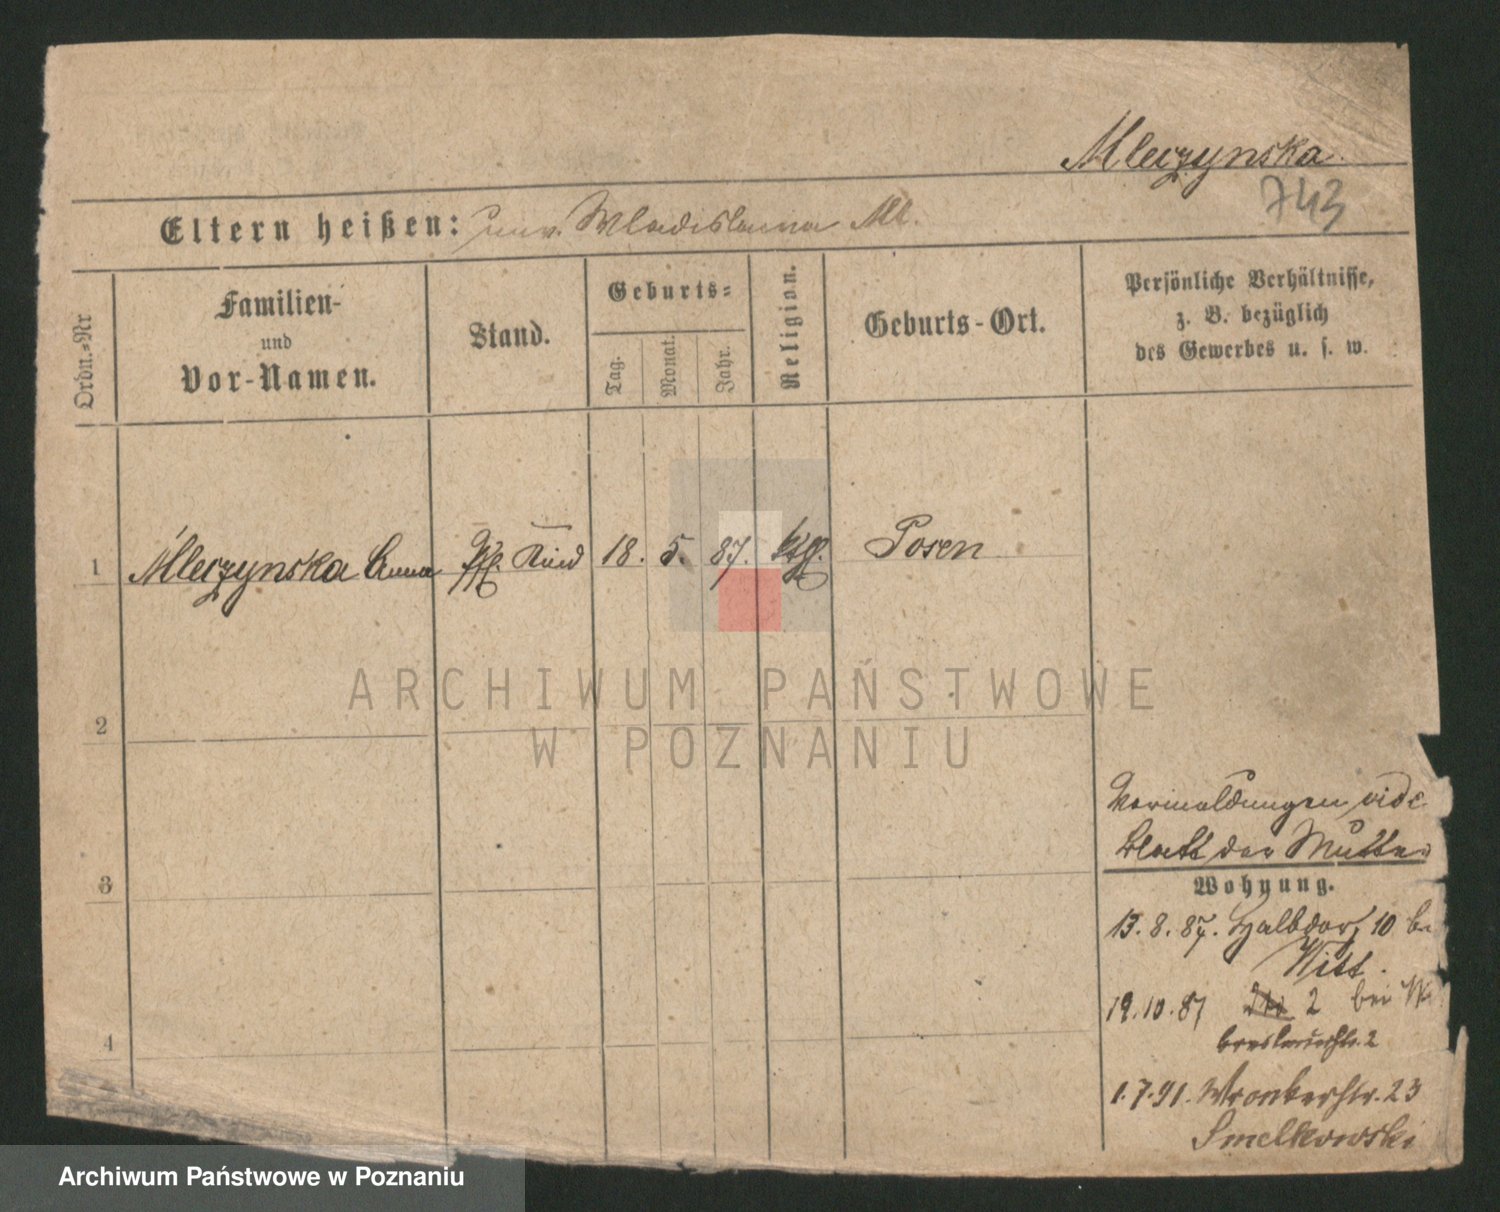 Mleczynska
743
Eltern heißen: unv. Wladislawa Ml.
Ordn.=Nr
Familien-
und
Vor-Namen.
Stand.
Geburts=
Tag.
Monat.
Jahr.
Religion.
Geburts-Ort.
Persönliche Verhältnisse,
z. B. bezüglich
des Gewerbes u. s. w.
1 Mleczynska Anna Kind 18. 5. 87. Posen
2
3
4
Vermeldungen vide
Blatt der Mutter
Wohnung.
13. 8. 87. Halbdorf 10 bei
Witt.
19. 10. 87 2 bei W
Breslauerstr. 2
1. 7. 91. Wronkerstr. 23
Smelkowski
ARCHIWUM PAŃSTWOWE
W POZNANIU
Archiwum Państwowe w Poznaniu